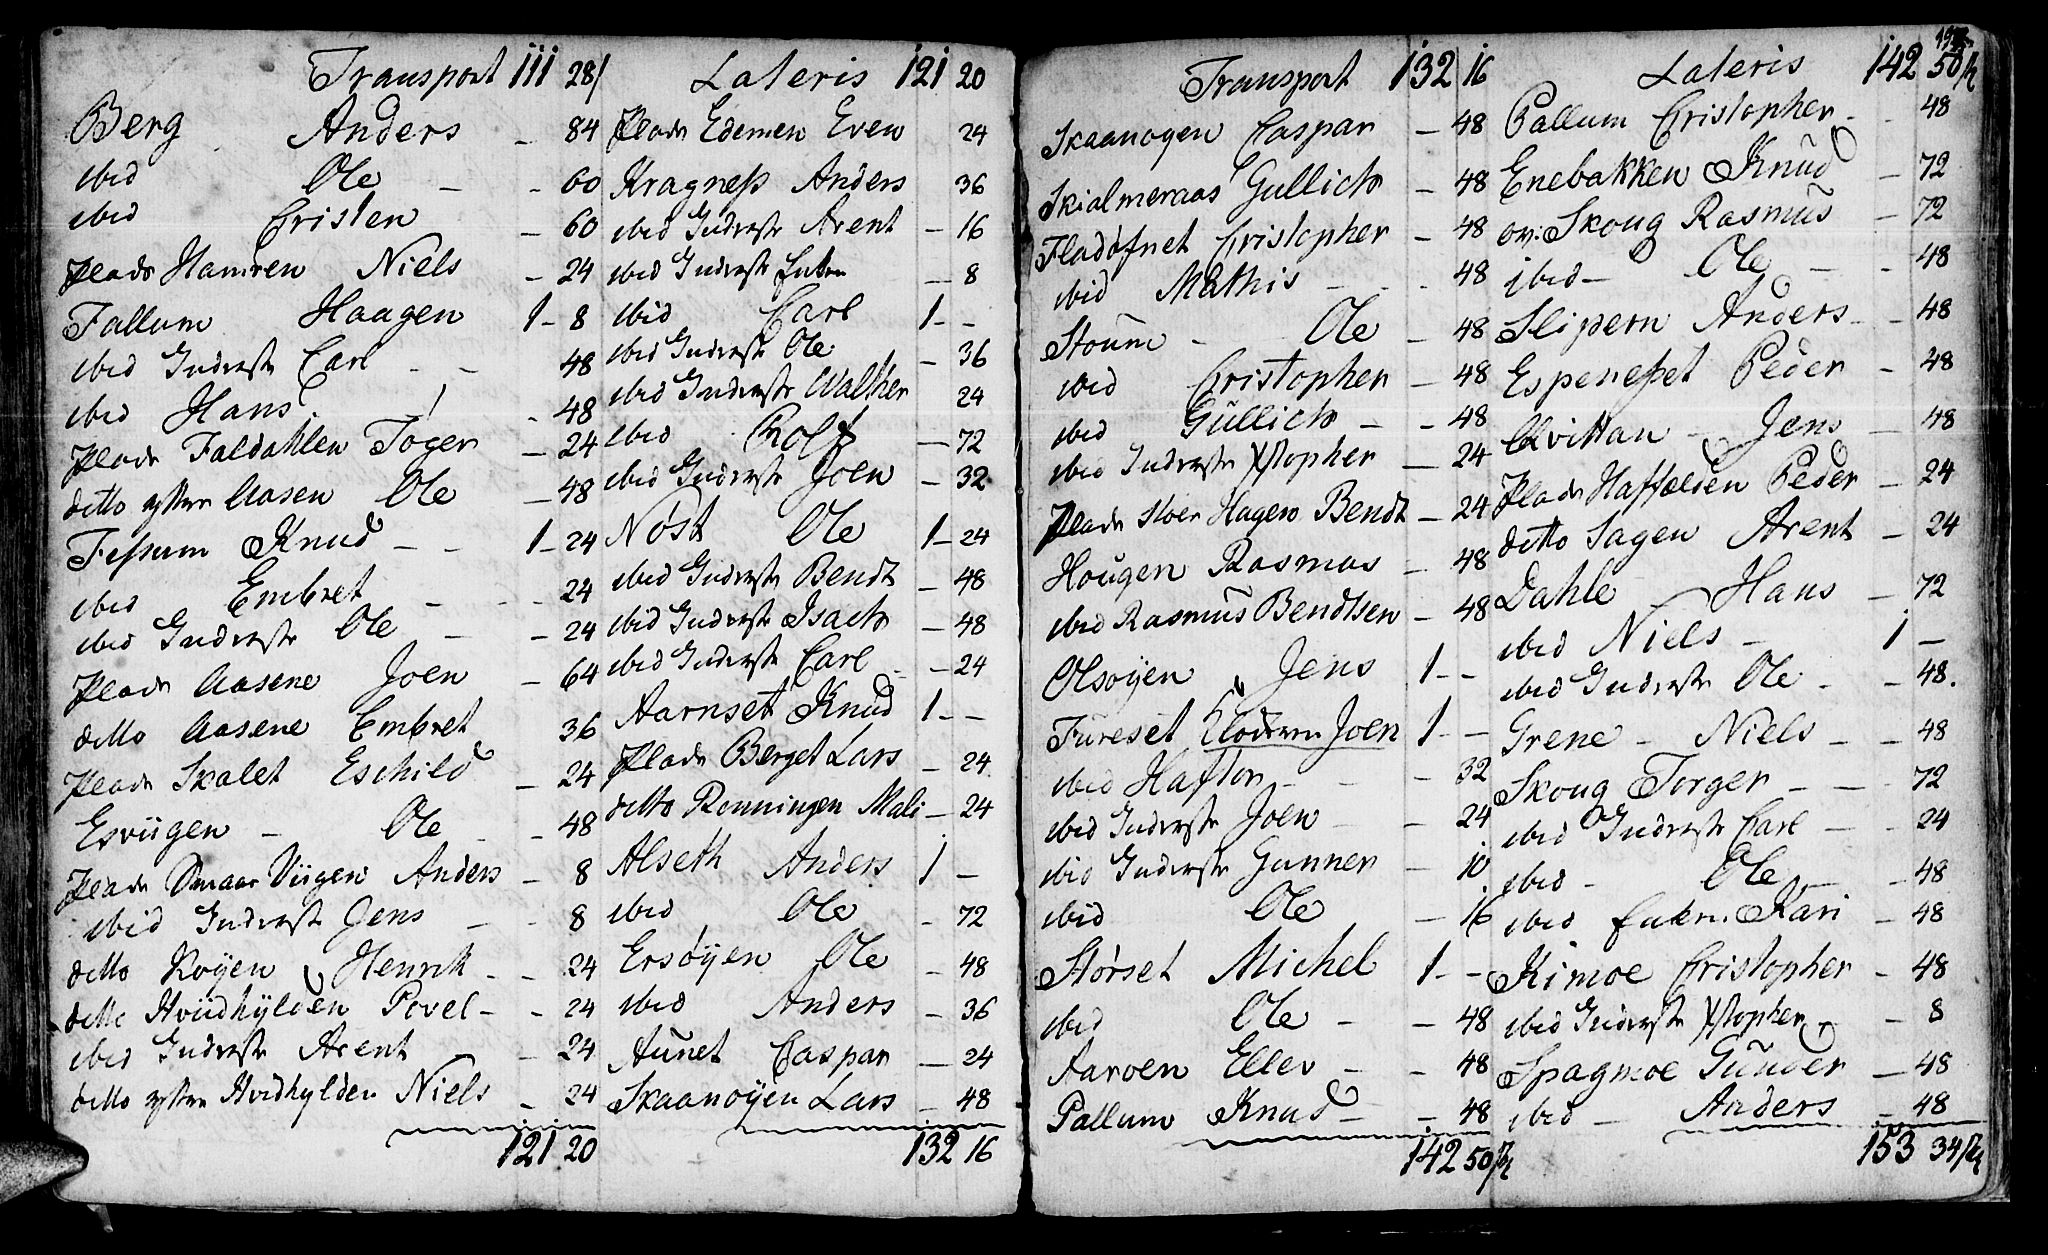 Transport 111 28/
Berg Anders - 84
ibid Ole - - 60
ibid Cristen - 60
Plads Hamren Niels - 24
Fallum Haagen 1 - 8
ibid Inderste Carl - - 48
ibid Hans - 48
Plads Faldahlen Toger - 24
ditto yttre Aasen Ole - 48
Fessum Knud - - 1 - 24
ibid Embret - - - 24
ibid Inderste Ole - - 24
Plads Aasene Joen - 64
ditto Aasene Embret 36
Plads Skalet Eschild - 24
Esviigen - Ole - - 48
Plads Smaae Viigen Anders - 8
ibid Inderste Jens - - 8
ditto Køyen Henrik - - 24
ditto Hvidhylden Povel - - 24
ibid Inderste Arent - 24
ditto yttre Hvidhylden Niels - 24
121 20
Lateris 121 20
Plads Edemen Even 24
Kragness Anders 36
ibid Inderste Arent - 16
ibid Inderste Enken - 8
ibid Carl 1 - -
ibid Inderste Ole - 36
ibid Inderste Walther 24
ibid Rolf - 72
ibid Inderste Joen - 32
Nøst Ole 1 - 24
ibid Inderste Bendt - 48
ibid Inderste Isach - 48
ibid Inderste Carl - - 24
Aarnset Knud 1 - -
Plads Berget Lars - 24
ditto Rønningen Mali - 24
Alseth Anders 1 -
ibid Ole - 72
Ersøyen Ole - 48
ibid Anders - 36
Aunet Caspar - 24
Skaanøyen Lars - 48
132 16
Transport 132 16
Skaanøyen Caspar - 48
Skialmeraas Gullich - 48
Fladøfnet Cristopher - 48
ibid Mathis - - - 48
Stoum - Ole - 48
ibid Cristopher - 48
ibid Gullich - - 48
ibid Inderste Xstopher - 24
Plads Stoer Hagen Bendt - 24
Hougen Rasmus - 48
ibid Rasmus Bendtsen - 48
Olsøyen Jens 1 - -
Fureset Joen 1 - -
ibid Haftor - - - 32
ibid Inderste Joen - - 24
ibid Inderste Gunner - 10
ibid Ole - 16
Størset Michel 1 - -
ibid Ole - - 48
Aaroen Ellev - - 48
Pallum Knud - - 48
142 50/
Lateris 142 50/
Pallum Cristopher - - 48
Enebakken Knud - 72
ov: Skoug Rasmus - 72
ibid - Ole - - 48
Slipern Anders - - 48
Espenesset Peder - 48
Qvittan - Jens - 48
Plads Haffælden Peder - 24
ditto Sagen Arent - 24
Dahle - Hans - 72
ibid Niels - 1 -
ibid Inderste Ole - - 48.
Grene - Niels - - 48
Skoug Torger - - 72
ibid Inderste Carl - - 24
ibid - Ole - - 48
ibid Enken Kari - 48
Kimoe Cristopher - 48
ibid Inderste Xstopher - - 8
Spagmoe Gunder - 48
ibid - Anders - 48
153 34/